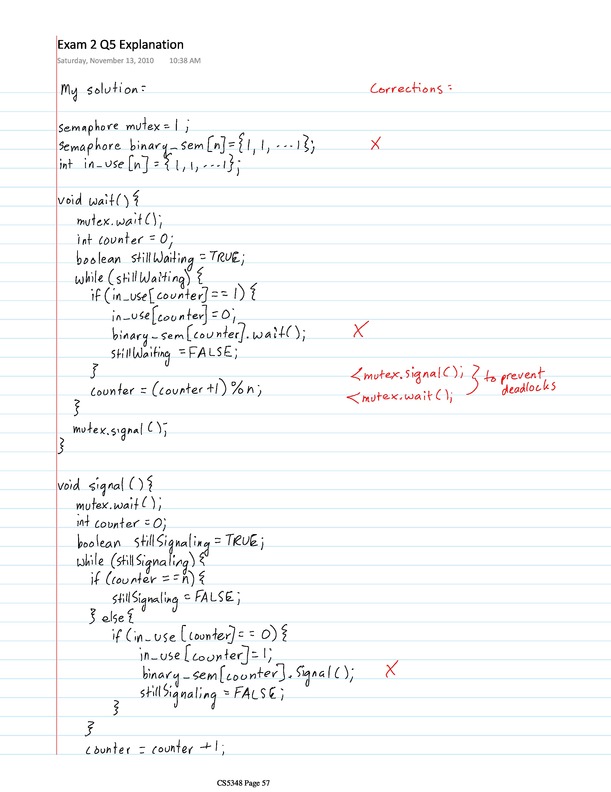 Exam 2 Q5 Explanation
Saturday, November 13, 2010 10:38 AM
My solution: Corrections:
semaphore mutex = 1;
semaphore binary_sem[n] = {1, 1, ...1}; X
int in_use[n] = {1, 1, ...1};
void wait() {
mutex.wait();
int counter = 0;
boolean stillWaiting = TRUE;
while (stillWaiting) {
if (in_use[counter] == 1) {
in_use[counter] = 0;
binary_sem[counter].wait(); X
stillWaiting = FALSE;
}
<mutex.signal(); } to prevent
counter = (counter+1) % n; deadlocks
<mutex.wait();
}
mutex.signal();
}
void signal() {
mutex.wait();
int counter = 0;
boolean stillSignaling = TRUE;
while (stillSignaling) {
if (counter == n) {
stillSignaling = FALSE;
} else {
if (in_use[counter] == 0) {
in_use[counter] = 1;
binary_sem[counter].signal(); X
stillSignaling = FALSE;
}
}
counter = counter + 1;
CS5348 Page 57